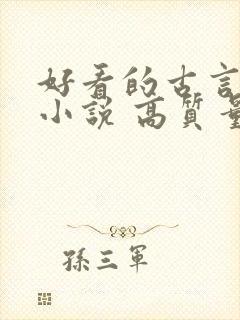 好看的古言
小說 高質量
孫三軍